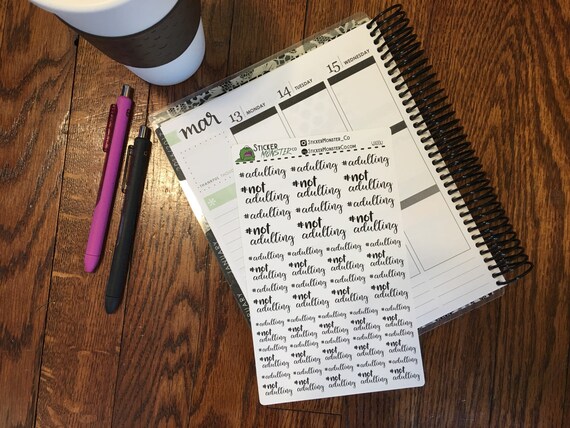 mar
13 MONDAY
14 TUESDAY
15 WEDNESDAY
STICKER
MONSTER CO
StickerMonster_Co
StickerMonsterCo.com
#adulting #adulting #adulting
#not #not #not
adulting adulting adulting
#adulting #adulting #adulting
#not #not #not
adulting adulting adulting
#adulting #adulting #adulting #adulting
#not #not #not #not
adulting adulting adulting adulting
#adulting #adulting #adulting #adulting
#not #not #not #not
adulting adulting adulting adulting
#adulting #adulting #adulting #adulting #adulting
#not #not #not #not #not
adulting adulting adulting adulting adulting
#adulting #adulting #adulting #adulting #adulting
#not #not #not #not #not
adulting adulting adulting adulting adulting
#adulting #adulting #adulting #adulting #adulting
#not #not #not #not #not
adulting adulting adulting adulting adulting
JANUARY